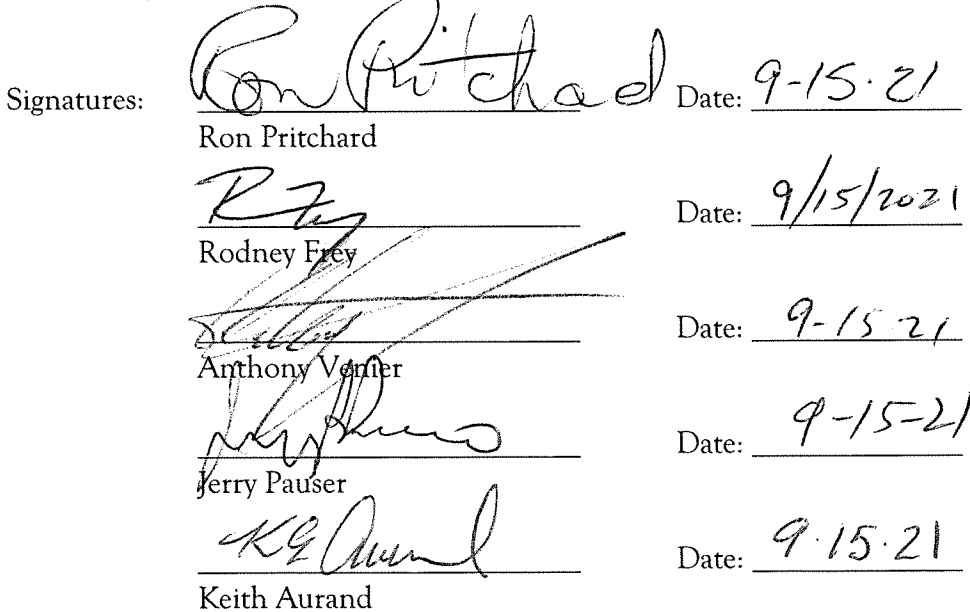 Signatures: Ron Pritchard Date: 9-15-21
Ron Pritchard
R Frey Date: 9/15/2021
Rodney Frey
Date: 9-15-21
Anthony Venier
Date: 9-15-21
Jerry Pauser
KE Aurand Date: 9-15-21
Keith Aurand